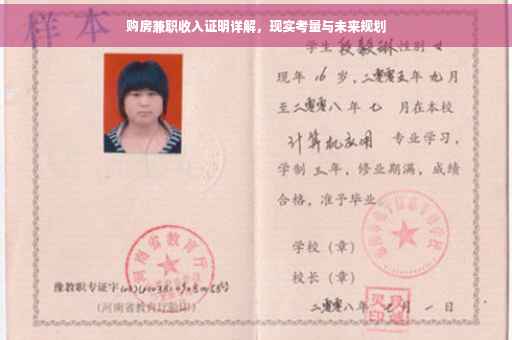 购房兼职收入证明详解，现实考量与未来规划
样本
学生 段毅琳 性别 女
现年 16 岁，二零零五年 九月
至二零零八年 七 月在本校
计算机应用 专业学习，
学制 三 年，修业期满，成绩
合格，准予毕业
学校（章）
校长（章）
二零零八年 七 月 一 日
河南省教育厅
豫教职专证字
（河南省教育厅验印）